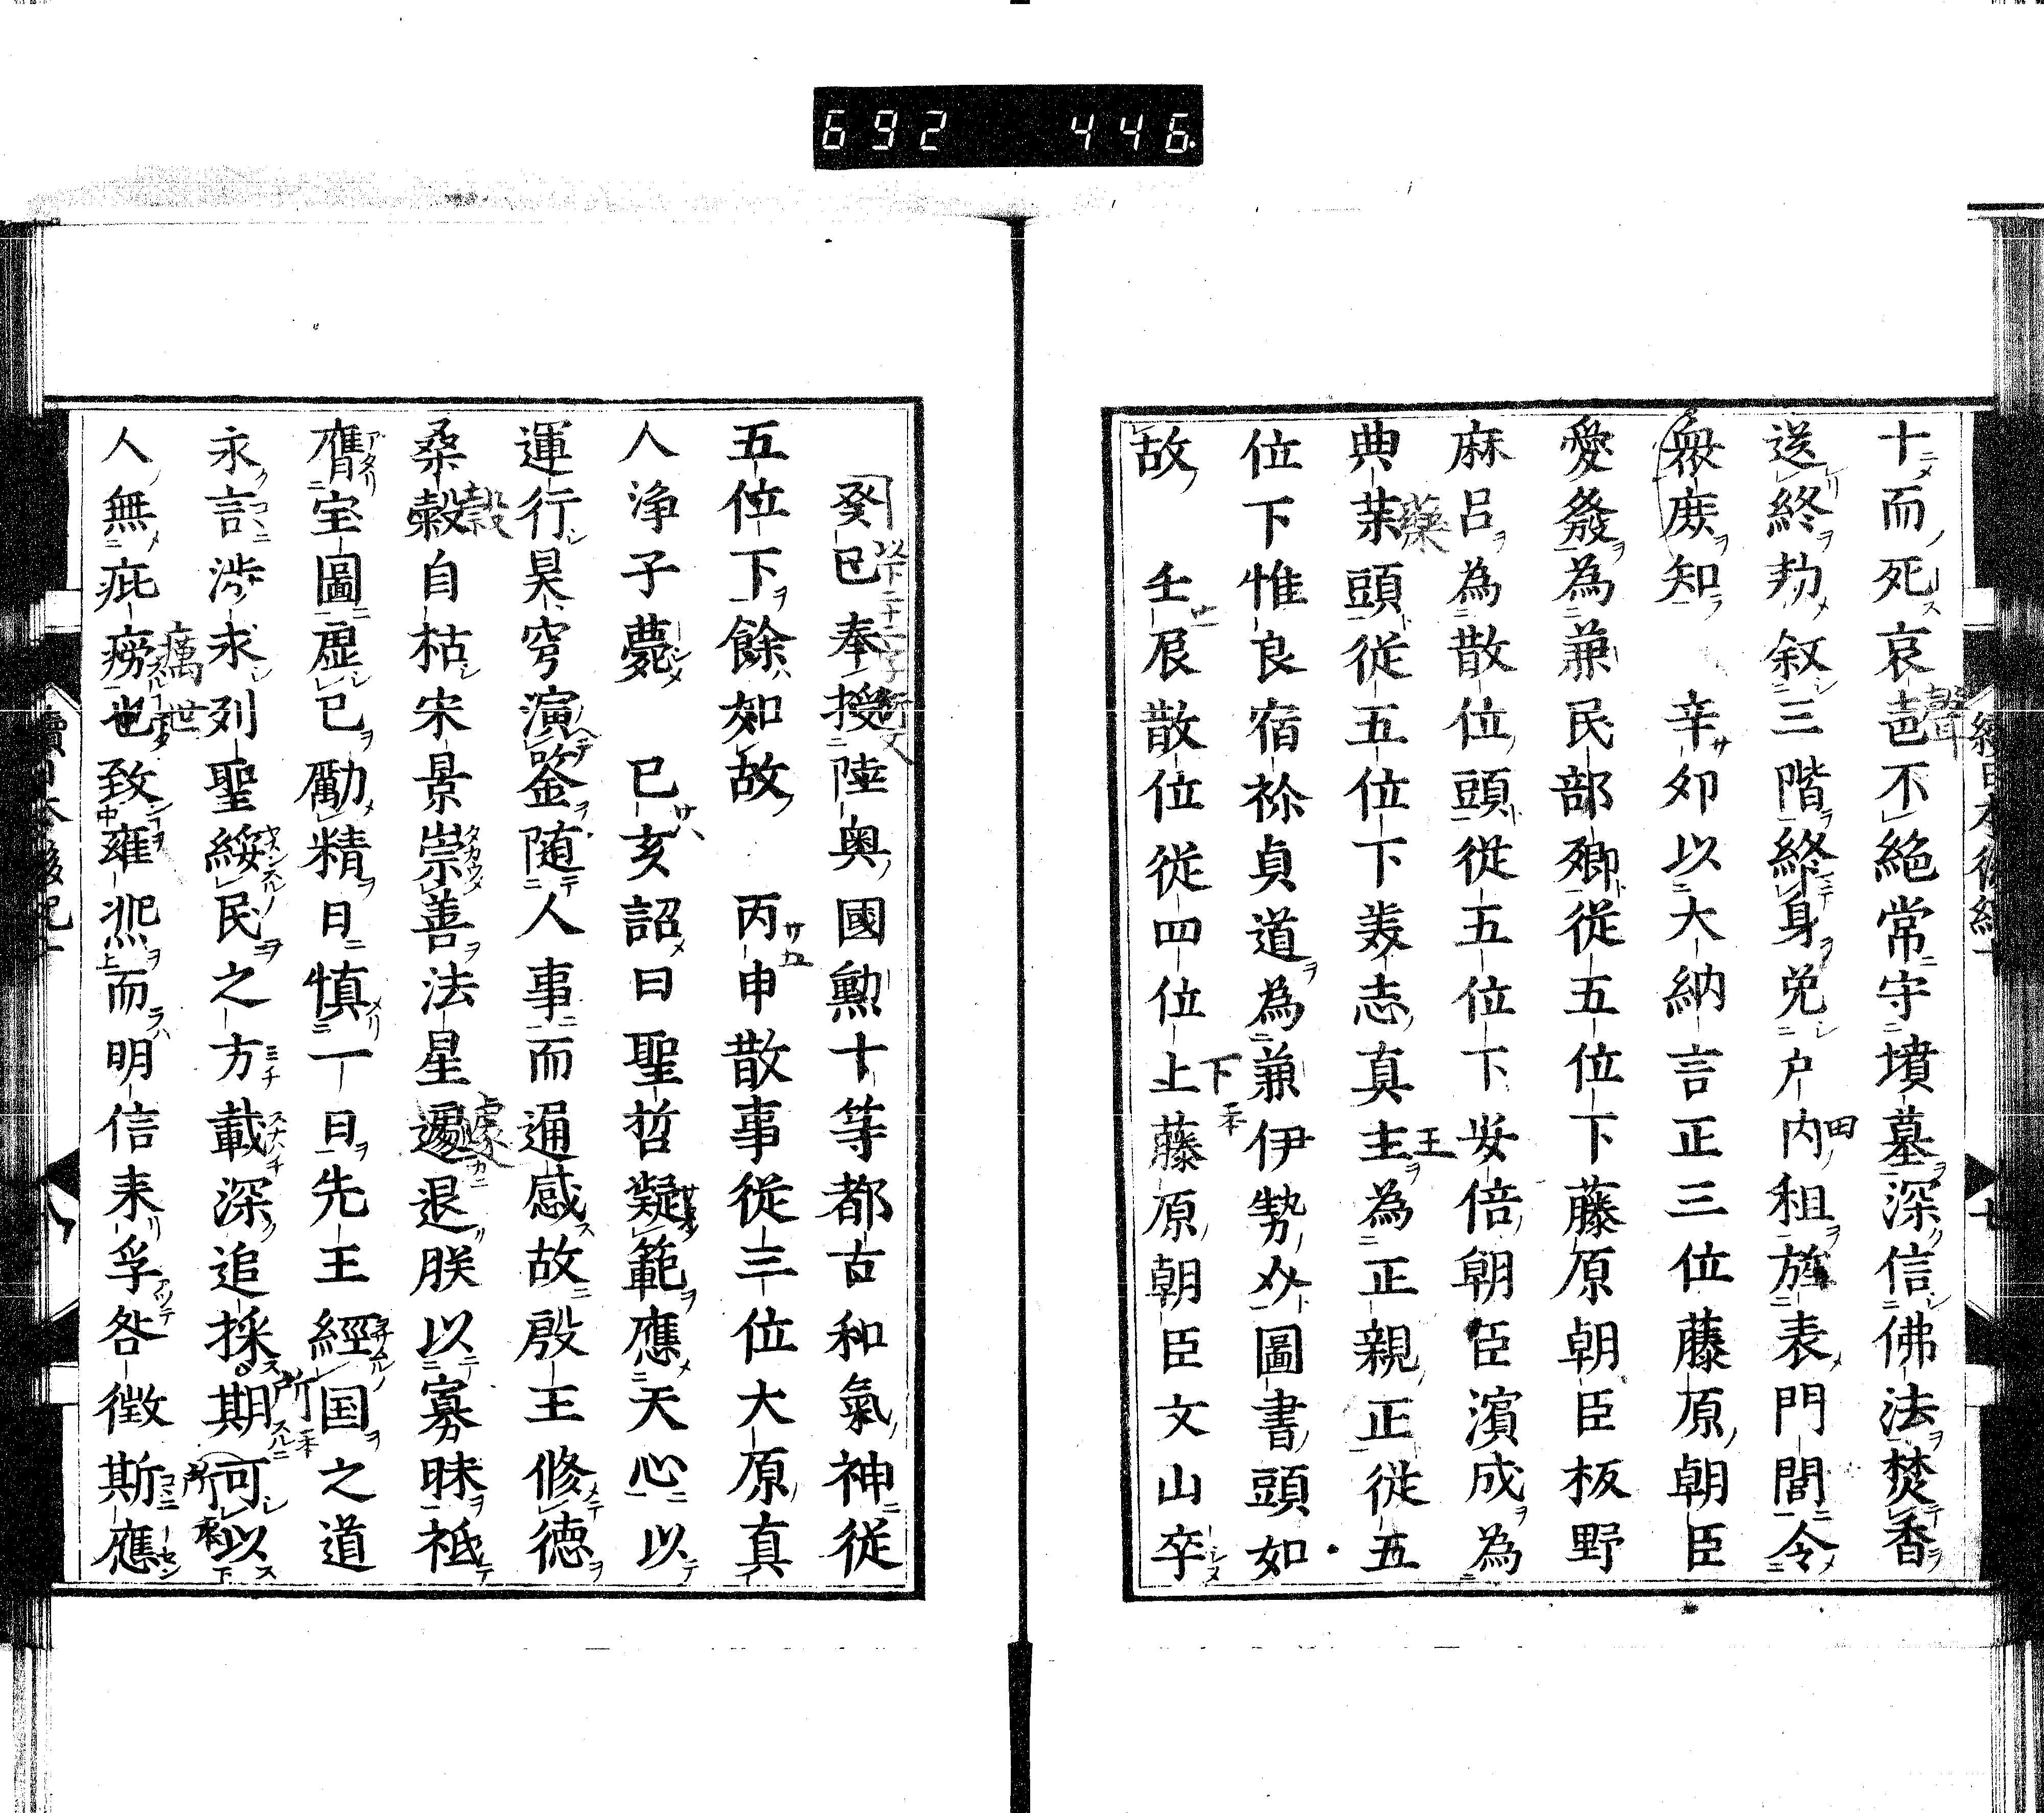 692 446
十而死哀邑不絶常守墳墓深信佛法焚香
送終勑叙三階終身免户内租旌表門閭令
衆庻知 辛夘以大納言正三位藤原朝臣
愛發為兼民部卿従五位下藤原朝臣板野
麻呂為散位頭従五位下安倍朝臣濱成為
典薬頭従五位下美志真主為正親正従五
位下惟良宿祢貞道為兼伊勢介圖書頭如
故 壬辰散位従四位上藤原朝臣文山卒
癸巳奉授陸奥國勲十等都古和氣神従
五位下餘如故 丙申散事従三位大原真
人浄子薨 已亥詔曰聖哲凝範應天心以
運行昊穹演鉴随人事而通感故殷王修徳
桑穀自枯宋景崇善法星遐退朕以寡昧祗
膺宝圖虚已勵精日慎一日先王經国之道
永言渉求列聖綏民之方載深追採期可以
人無疵癆也致雍凞而明信未孚咎徴斯應